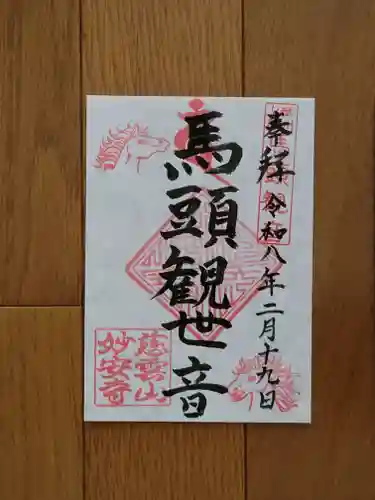 奉拝 令和八年二月十九日
馬頭観世音
慈雲山
妙安寺